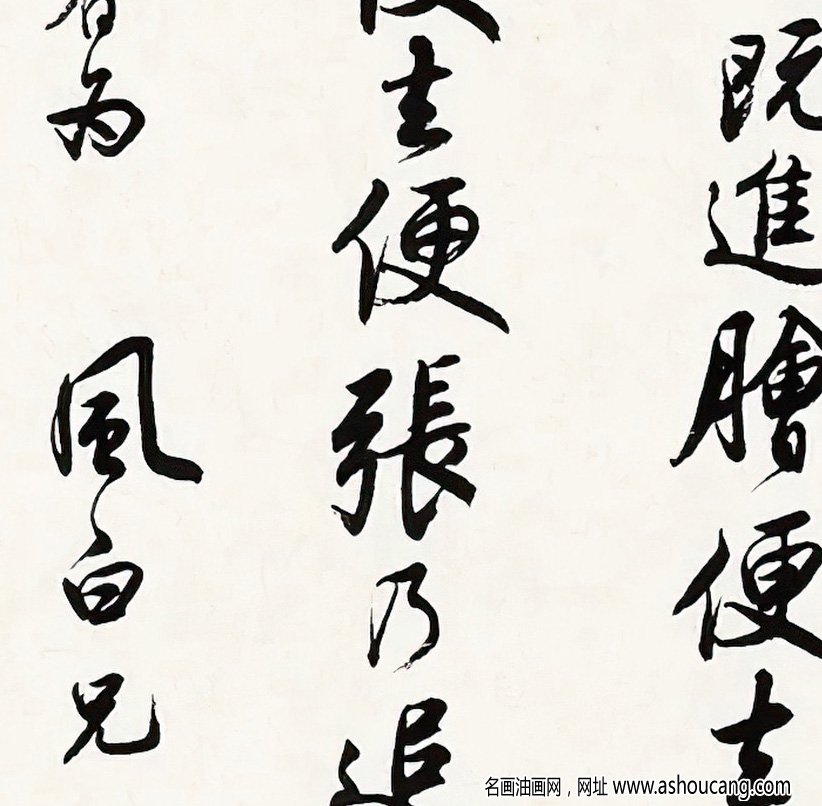 既進膾便去
便去便張乃追
为
風白兄
名画油画网，网址 www.ashoucang.com